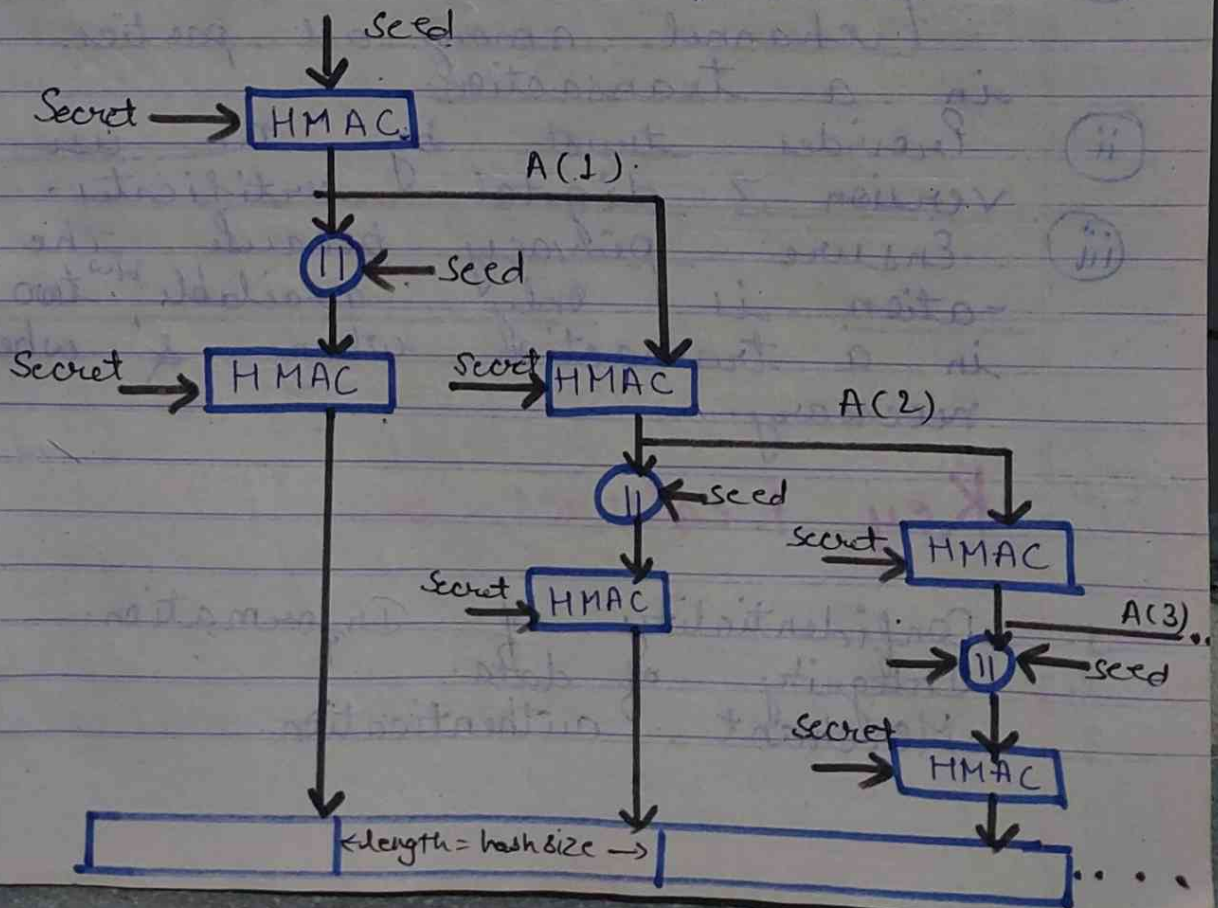 seed
Secret HMAC
A(1).
|| seed
Secret HMAC Secret HMAC
A(2)
|| seed
secret HMAC
Secret HMAC
A(3)..
|| seed
Secret
HMAC
←length = hash size→
....